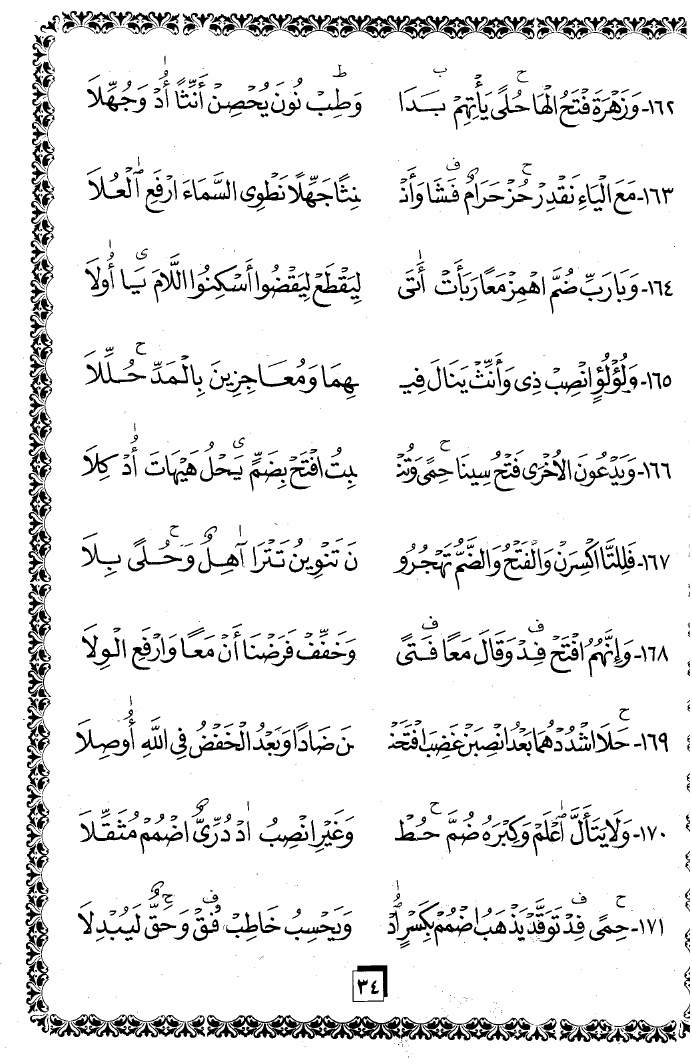 ١٦٢- وَزَهْرَةَ فَتْحُ الْهَا حُلًى يَأْتِهِمْ بَدَا وَطِبْ نُونَ يُحْصِنَ أَنِّثًا أُدْ وَجُهِّلَا
١٦٣- مَعَ الْيَاءِ نَقْدِرْ حُزْ حَرَامٌ فَشَا وَأَنْ نِثًا جَهِّلًا نَطْوِى السَّمَاءَ ارْفَعِ الْعُلَا
١٦٤- وَبَا رَبِّ ضُمَّ اهْمِزْ مَعًا رَبَأَتْ أَتَى لِيَقْطَعْ لِيَقْضُوا أَسْكِنُوا اللَّامَ يَا أُولَا
١٦٥- وَلُؤْلُؤٍ انْصِبْ ذِى وَأَنِّثْ يَنَالَ فِيـ ـهِمَا وَمُعَاجِزِينَ بِالْمَدِّ حُلِّلَا
١٦٦- وَيَدْعُونَ الْاُخْرَى فَتْحُ سِينَا حِمًى وَتُنْـ ـبِتُ افْتَحْ بِضَمٍّ يَحْلُ هَيْهَاتَ أُدْ كِلَا
١٦٧- فَلِلتَّا اكْسِرَنْ وَالْفَتْحُ وَالضَّمُّ تَهْجُرُو نَ تَنْوِينُ تَتْرَا آهِلٌ وَحُلًى بِلَا
١٦٨- وَإِنَّهُمُ افْتَحْ فِدْ وَقَالَ مَعًا فَتًى وَخَفِّفْ فَرَضْنَا أَنْ مَعًا وَارْفَعِ الْوِلَا
١٦٩- حَلَا اشْدُدْهُمَا بَعْدُ انْصِبَنْ غَضِبَ افْتَحَنْـ ـنَ ضَادًا وَبَعْدُ الْخَفْضُ فِى اللَّهِ أُوصِلَا
١٧٠- وَلَا يَتَأَلَّ اعْلَمْ وَكِبْرَهُ ضُمَّ حُطْ وَغَيْرِ انْصِبُ ادْ دُرِّىُّ اضْمُمْ مُثَقِّلَا
١٧١- حِمًى فِدْ تَوَقَّدْ يَذْهَبُ اضْمُمْ بِكَسْرٍ أُدْ وَيَحْسِبُ خَاطِبْ فُقْ وَحُقَّ لَيُبْدِلَا
٣٤